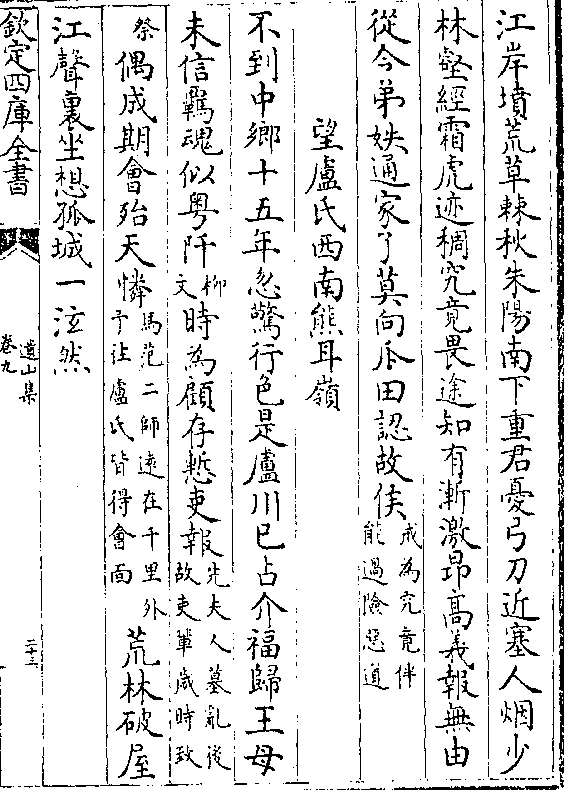 江岸墳荒草棘秋朱陽南下重君憂弓刀近塞人烟少
林壑經霜虎迹稠究竟畏途知有漸激昂髙義報無由
從今弟姪通家了莫向瓜田認故侯戒為究竟伴能過險惡道
望盧氏西南熊耳嶺
不到中鄉十五年忽驚行色是盧川已占介福歸王母
未信羈魂似粤阡柳文時為顧存慙吏報先夫人墓亂後故吏軰歲時致
祭偶成期會殆天憐馬范二師逺在千里外予往盧氏皆得會面荒林破屋
江聲裏坐想孤城一泫然
欽定四庫全書
遺山集
卷九
二十三